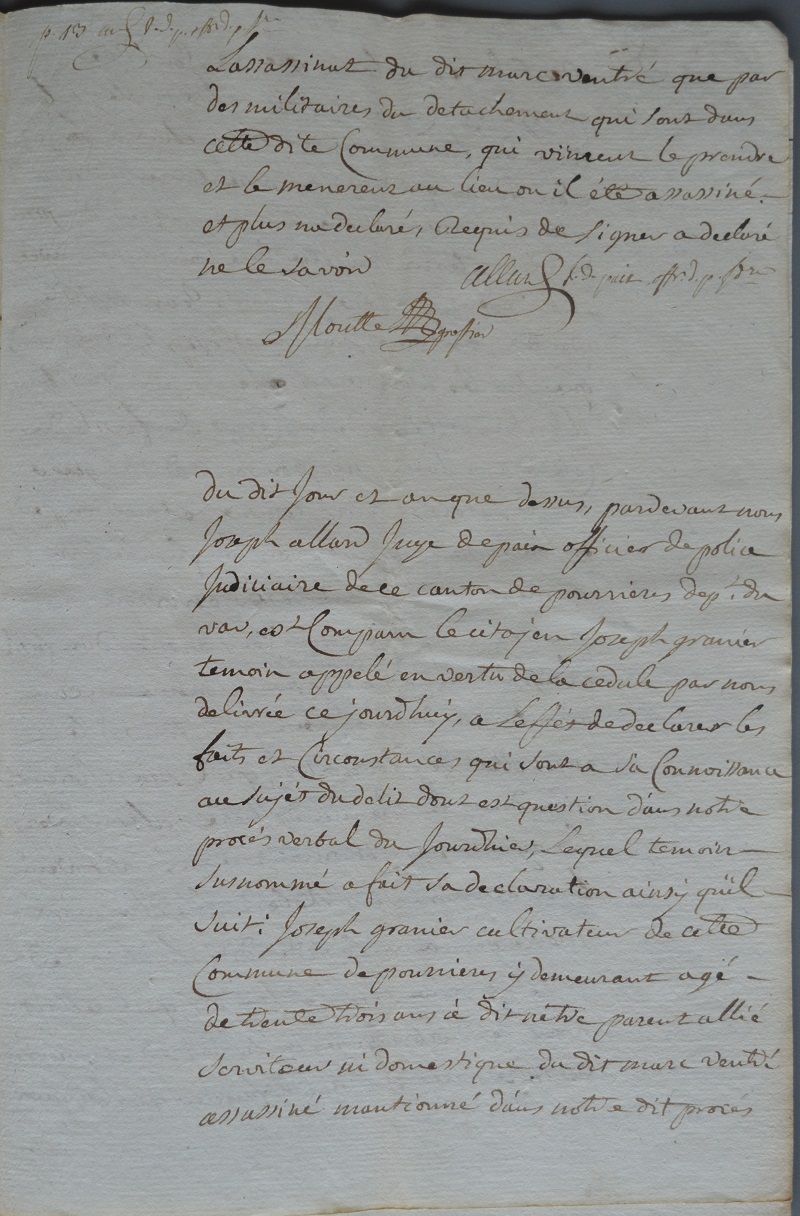 L'assassinat du dit marc ventré que par
des militaires du detachement qui sont dans
cette dite Commune, qui vinrent le prendre
et le menerent au lieu ou il été assassiné.
et plus na declaré, Requis de signer a declaré
ne le savoir
allard j. de paix offr. d. p. jre
Moutte greffier
du dit Jour et an que dessus, pardevant nous
Joseph allard Juge de paix officier de police
Judiciaire de ce canton de pourrieres dept. du
var, est Comparu le citoyen Joseph granier
temoin appelé en vertu de la cedule par nous
delivrée ce jourdhuy, a Leffét de declarer les
faits et Circonstances qui sont a sa Connoissance
au sujét du delit dont est question dans notre
procés verbal du Jourdhier, Lequel temoin
susnommé a fait sa declaration ainsy qu'il
suit: Joseph granier cultivateur de cette
Commune de pourrieres y demeurant agé
de trente trois ans à dit nétre parent allié
serviteur ni domestique du dit marc ventré
assassiné mantionné dans notre dit procés